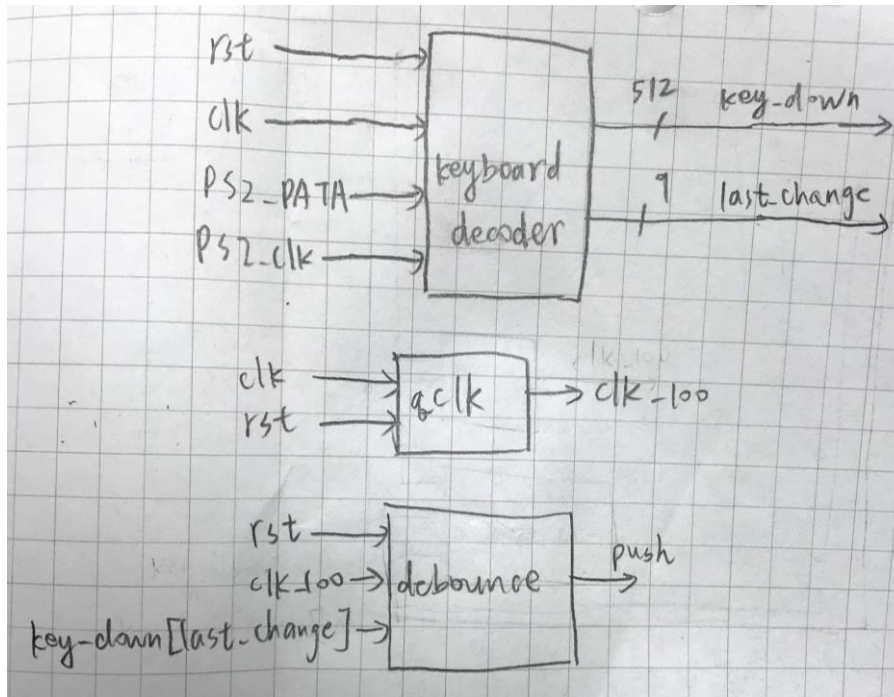 rst
clk
PS2_PATA
PS2_clk
keyboard
decoder
512
key-down
9
last-change
clk
rst
qclk
clk_100
clk_100
rst
clk_100
key-down[last_change]
debounce
push